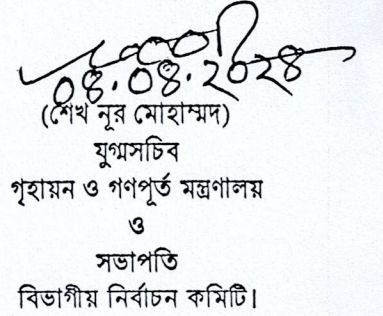 ০৪.০৪.২০২৪
(শেখ নূর মোহাম্মদ)
যুগ্মসচিব
গৃহায়ন ও গণপূর্ত মন্ত্রণালয়
ও
সভাপতি
বিভাগীয় নির্বাচন কমিটি।